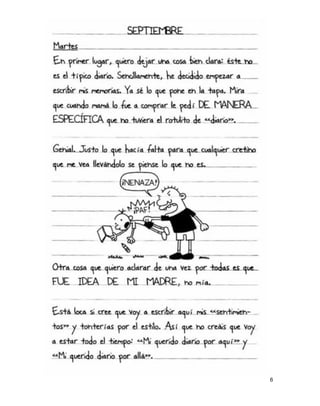 SEPTIEMBRE
Martes
En primer lugar, quiero dejar una cosa bien clara: éste no
es el típico diario. Sencillamente, he decidido empezar a
escribir mis memorias. Ya sé lo que pone en la tapa. Mira
que cuando mamá lo fue a comprar le pedí DE MANERA
ESPECÍFICA que no tuviera el rotulito de «diario».
Genial. Justo lo que hacía falta para que cualquier cretino
que me vea llevándolo se piense lo que no es.
¡NENAZA!
¡PAF!
Otra cosa que quiero aclarar de una vez por todas es que
FUE IDEA DE MI MADRE, no mía.
Está loca si cree que voy a escribir aquí mis «sentimien-
tos» y tonterías por el estilo. Así que no creáis que voy
a estar todo el tiempo: «Mi querido diario por aquí» y
«Mi querido diario por allá».
6